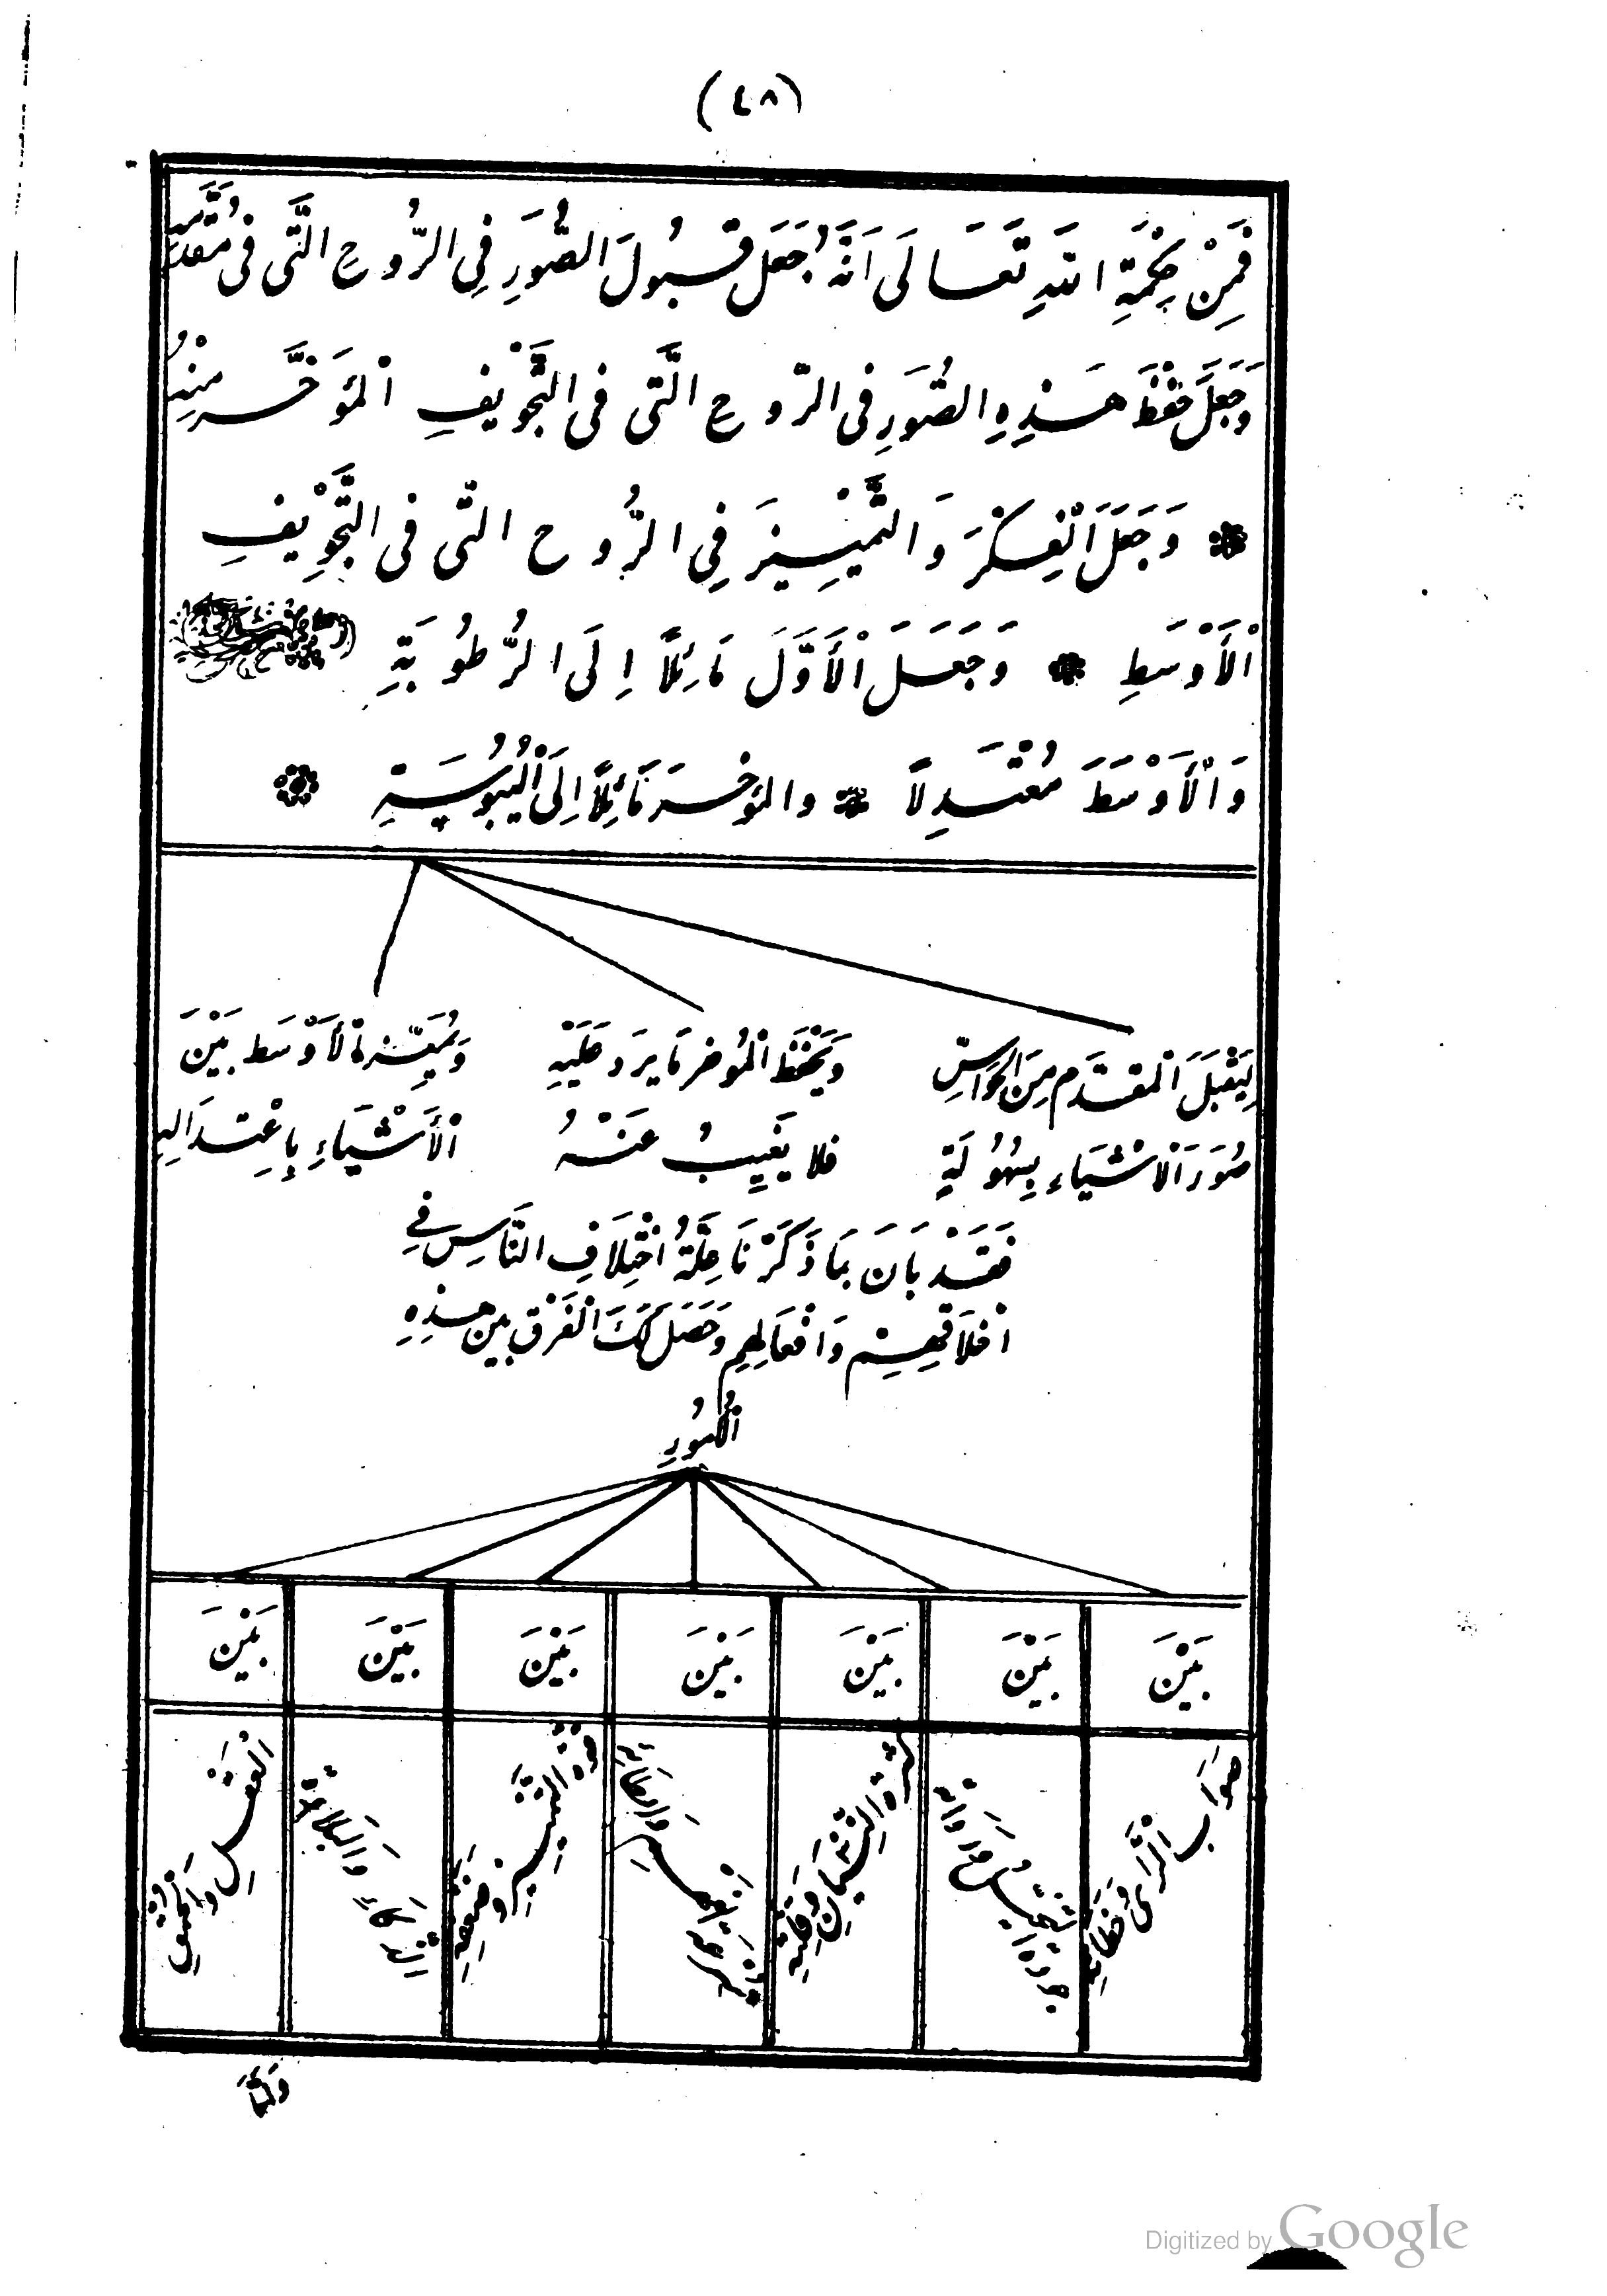 (٤٨)
فَمِنْ حِكْمَةِ اللهِ تَعَالَى اَنَّهُ جَعَلَ قَبُولَ الصُّوَرِ فِي الرُّوحِ الَّتَى فى مُقَدَّمِ
وَجَعَلَ حِفْظَ هَذِهِ الصُّوَرِ فى الرّوح الَّتى فى التَّجْوِيْفِ الْمُؤَخَّرِ مِنْهُ
وَجَعَلَ الْفِكْرَ وَالتَّمْيِيْزَ فِى الرُّوح التّى فى التَّجْوِيْفِ
الْأَوْسَطِ وَجَعَلَ الْأَوَّلَ مَائِلًا اِلَى الرُّطُوبَةِ
وَالْأَوْسَطَ مُعْتَدِلًا والمؤخرَ مَائِلًا اِلَى الْيُبُوسَةِ
لِيَقْبَلَ الْمقدَّم مِنَ الْحَوَاسِّ
صُوَرَ الْاَشْيَاءِ بِسُهُولَةٍ
وَيَحْفَظَ الْمُوخر مَا يَرد عَلَيْهِ
فلا يَغِيبُ عَنْهُ
وَيُمَيِّزَ الْأَوْسَط بَيْنَ
الْأَشْيَاءِ بِاعْتِدَالِهِ
فَقَدْ بَانَ بِمَا ذَكَرْنَا عِلَّةُ اخْتِلَافِ النَّاسِ فِى
اخْلَاقِهِمْ وَافْعَالِهِمِ وَحَصَلَ لَكَ الْفَرْق بين هذِهِ
الْاُمُورِ
بَيْنَ بَيْنَ بَيْنَ بَيْنَ بَيْنَ بَيْنَ بَيْنَ
صَوَابِ الرَّاىِ وَخَطَائِهِ
جودة القياس وردائة
كثرة النِّسْيَانِ وَقِلَّتِهِ
قوة التَّمْيِيزِ وضَعْفِهِ
الذَّكَاءِ وَالْبَلَادَةِ
الْعَقْلِ وَالْحُمْقِ
وَلَمَّا
Digitized by Google